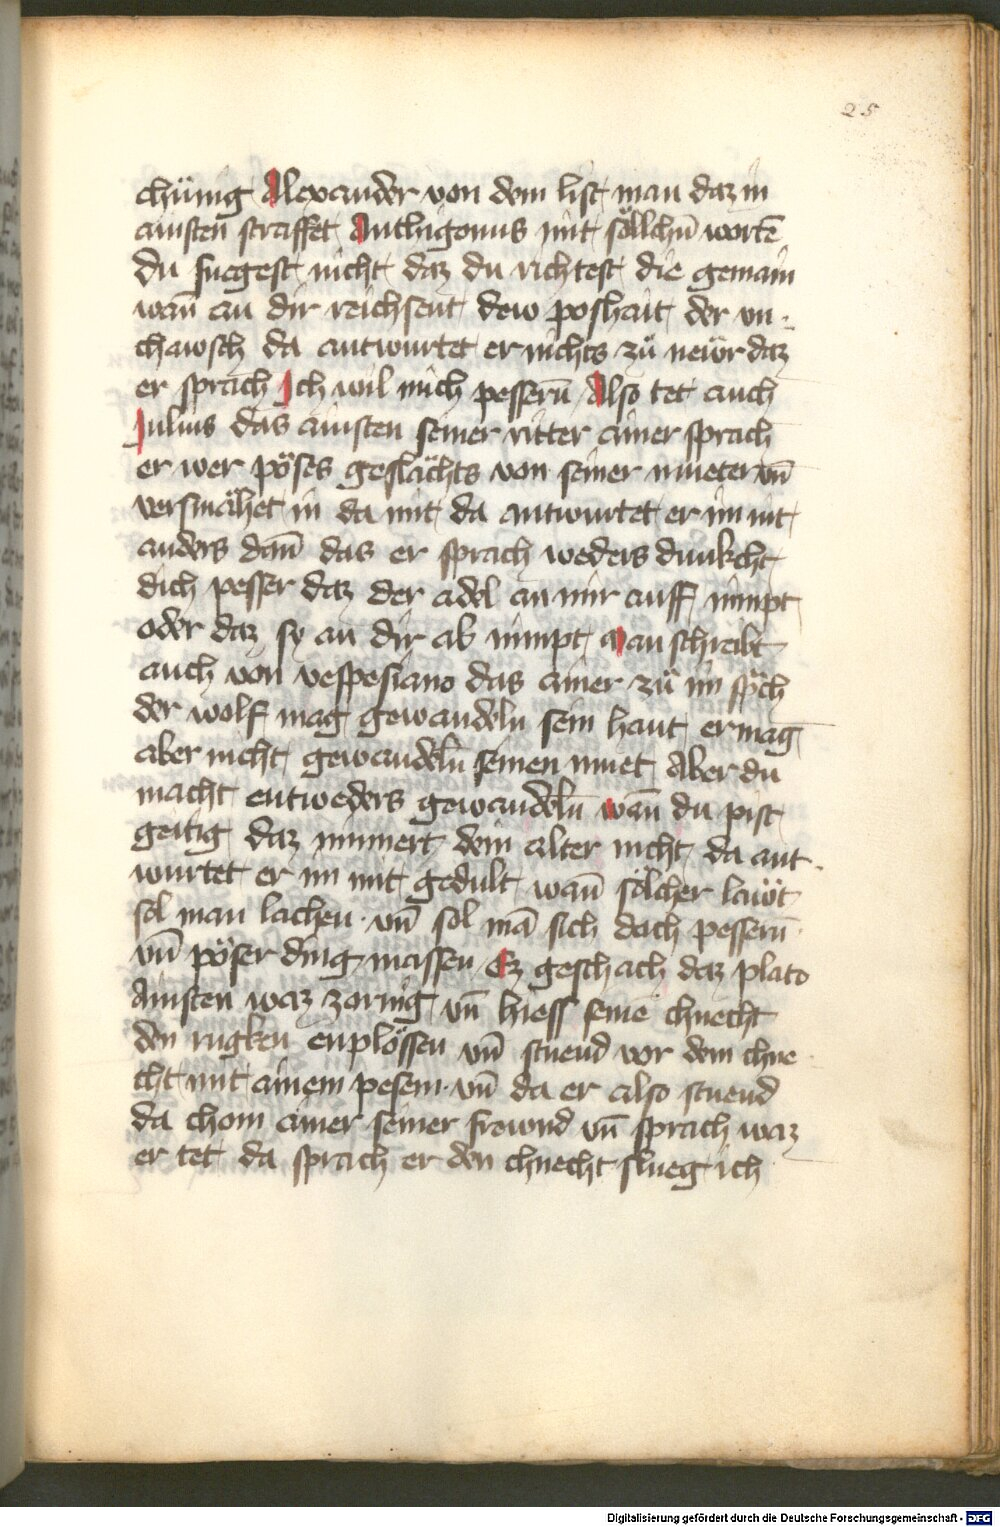 25
chünig Alexander von dem list man daz in
ainsten straffet Anthigonus mit söllchn̄ wortē
du fuegest nicht daz du richtest die gemain
wan̄ an dir reichsent dew poshait der vn-
chawsch da antwurtet er nichts zü newr daz
er sprach Ich wil mich pessern̄ Also tet auch
Julius das ainsten seiner ritter ainer sprach
er wer pöses geslächts von seiner mueter vn̄
versmähet in da mit da antwurtet er im nit
anders dan̄ das er sprach weders dunkcht
dich pesser daz der adel an mir auff nimpt
oder daz sy an dir ab nimpt Man schreibt
auch von vespesiano das ainer zü im sp̄ch
der wolf mag gewandeln sein haut er mag
aber nicht gewandeln̄ seinen muet Aber du
macht entweders gewandeln̄ wan̄ du pist
geitig daz minnert dein alter nicht da ant-
wurtet er im mit gedult wan̄ sölcher lawt
sol man lachen · vn̄ sol mā sich dach pessern̄
vn̄ pöser ding massen Ez geschach daz plato
Ainsten waz zornig vn̄ hiess seinē chnecht
den rugken enplössen vn̄ stuend vor dem chne-
cht mit ainem pesem · vn̄ da er also stuend
da chom ainer seiner frewnd vn̄ sprach waz
er tet da sprach er den chnecht slueg ich
Digitalisierung gefördert durch die Deutsche Forschungsgemeinschaft - DFG